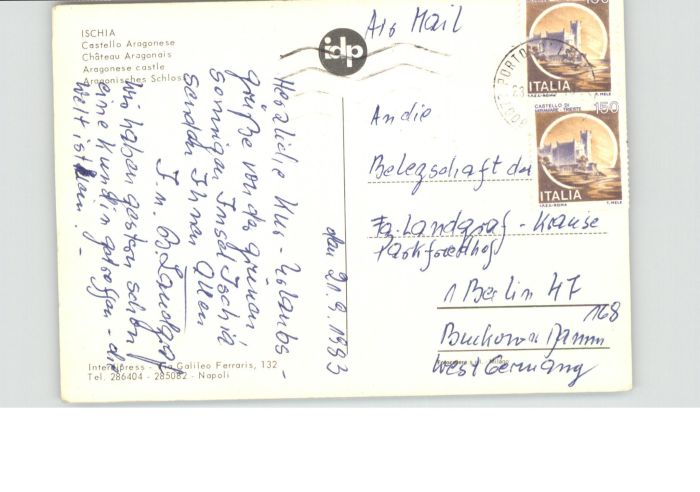 ISCHIA
Castello Aragonese
Château Aragonais
Aragonese castle
Aragonisches Schloss
idp
Air Mail
150
ITALIA
I.P.Z.S.-ROMA T. MELE
CASTELLO DI
MIRAMARE - TRIESTE
150
ITALIA
I.P.Z.S.-ROMA T. MELE
PORTO
den 21.9.1983
Herzliche Kur-Urlaubs-
grüße von der grünen
sonnigen Insel Ischia
sendet Ihnen Allen
F. u. B. Landgraf
Wir haben gestern schon
eine Kundin getroffen - die
Welt ist klein! -
An die
Belegschaft der
Fa. Landgraf - Krause
Parkfriedhof
1 Berlin 47
168
Buckower Damm
West Germany
Interdipress - Via Galileo Ferraris, 132
Tel. 286404 - 285082 - Napoli